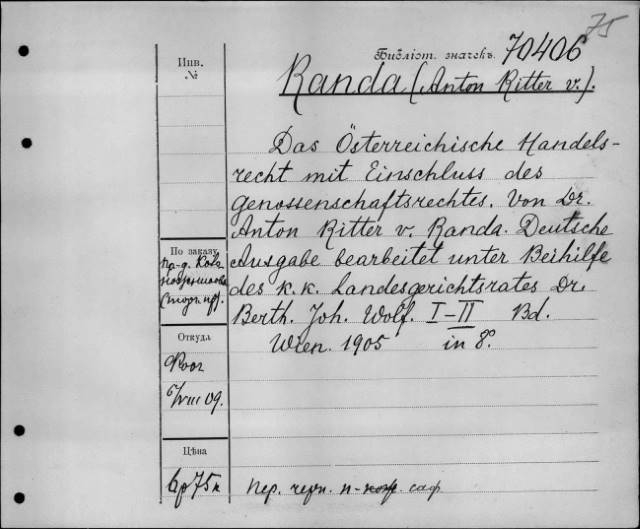 75
Библіот. значекъ 70406
Инв.
№
Randa (Anton Ritter v.).
Das Österreichische Handels-
recht mit Einschluss des
genossenschaftsrechtes. Von Dr.
Anton Ritter v. Randa. Deutsche
Ausgabe bearbeitet unter Beihilfe
des K. K. Landesgerichtsrates Dr.
Berth. Joh. Wolf. I–II Bd.
Wien. 1905 in 8°.
По заказу
Откуда
6/VIII 09.
Цѣна
6р75к
Пер. черн.